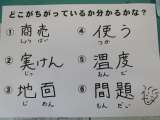 どこがちがっているか分かるかな？
① 商売
しょう ばい
② 実けん
じっ
③ 地面
じ めん
④ 使う
つか
⑤ 温度
おん ど
⑥ 問題
もん だい